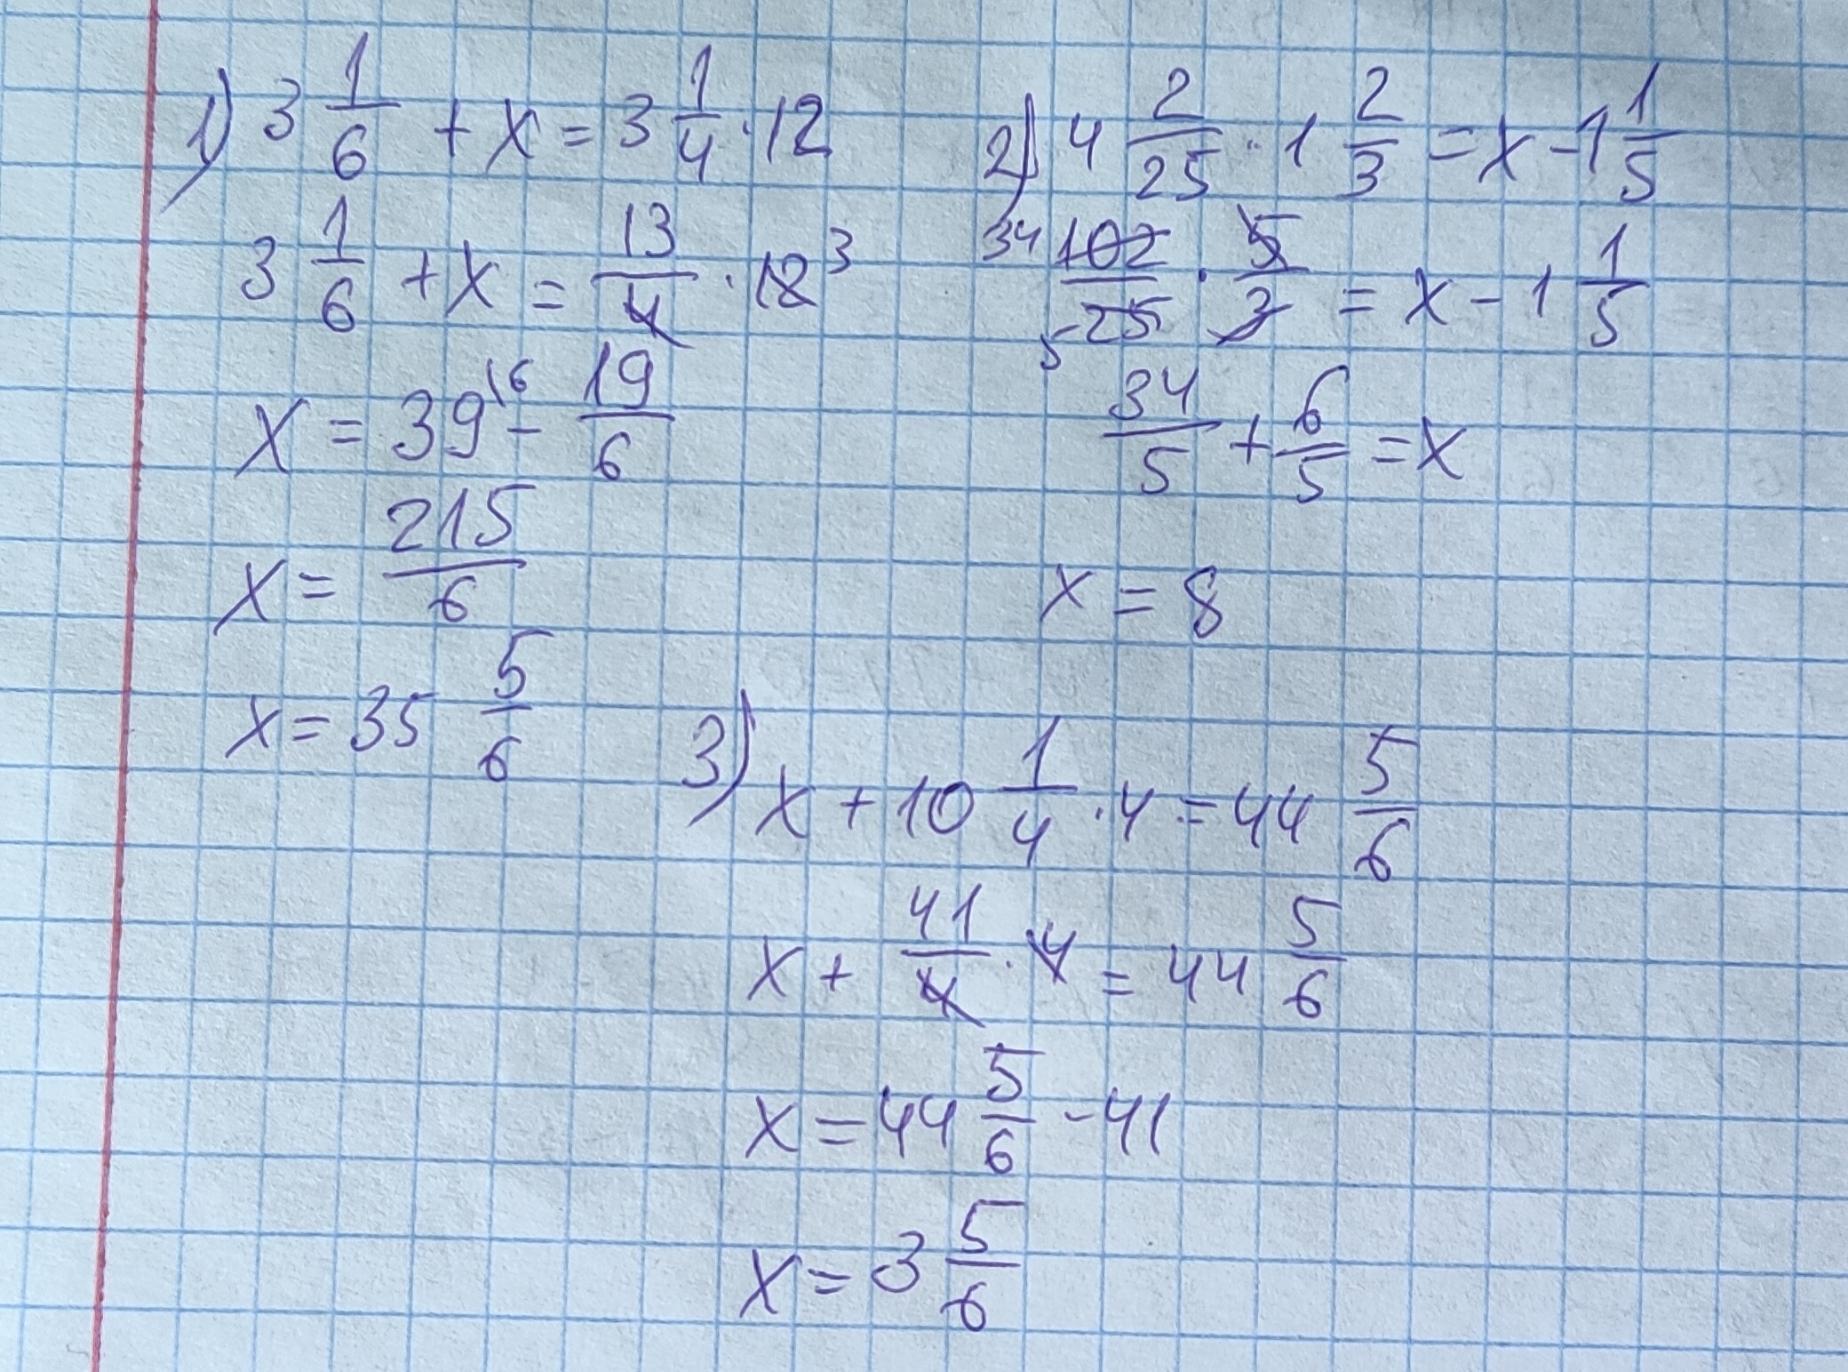 1) 3 1/6 + x = 3 1/4 · 12
3 1/6 + x = 13/4 · 12 3
x = 39 16 - 19/6
x = 215/6
x = 35 5/6
2) 4 2/25 · 1 2/3 = x - 1 1/5
34 102/25 5 · 5/3 = x - 1 1/5
34/5 + 6/5 = x
x = 8
3) x + 10 1/4 · 4 = 44 5/6
x + 41/4 · 4 = 44 5/6
x = 44 5/6 - 41
x = 3 5/6